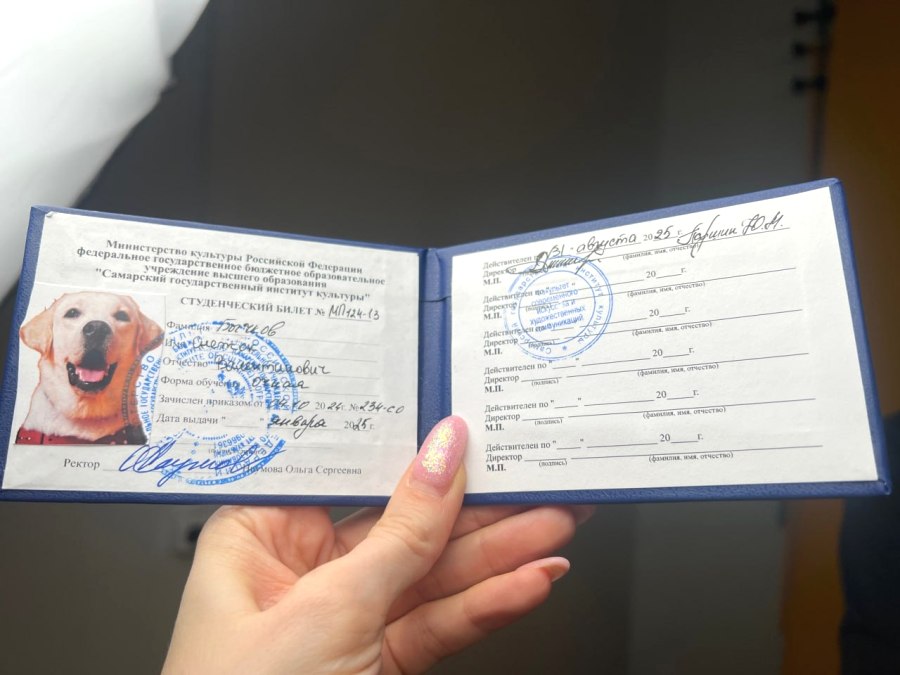 Министерство культуры Российской Федерации
федеральное государственное бюджетное образовательное
учреждение высшего образования
"Самарский государственный институт культуры"
СТУДЕНЧЕСКИЙ БИЛЕТ № МП124-13
Фамилия
Имя
Отчество Валентинович
Форма обучения Очная
Зачислен приказом от 20 24 г. № 234-со
Дата выдачи " " января 2025 г.
Ректор Наумова Ольга Сергеевна
Действителен по "31" августа 20 25 г.
Директор
(фамилия, имя, отчество)
М.П.
(подпись)
Действителен по 20 г.
Директор
(фамилия, имя, отчество)
М.П.
Действителен по " 20 г.
Директор
(фамилия, имя, отчество)
М.П.
Действителен по " " 20 г.
Директор
(подпись)
(фамилия, имя, отчество)
М.П.
Действителен по " " 20 г.
Директор
(подпись)
(фамилия, имя, отчество)
М.П.
Действителен по " " 20 г.
Директор
(подпись)
(фамилия, имя, отчество)
М.П.